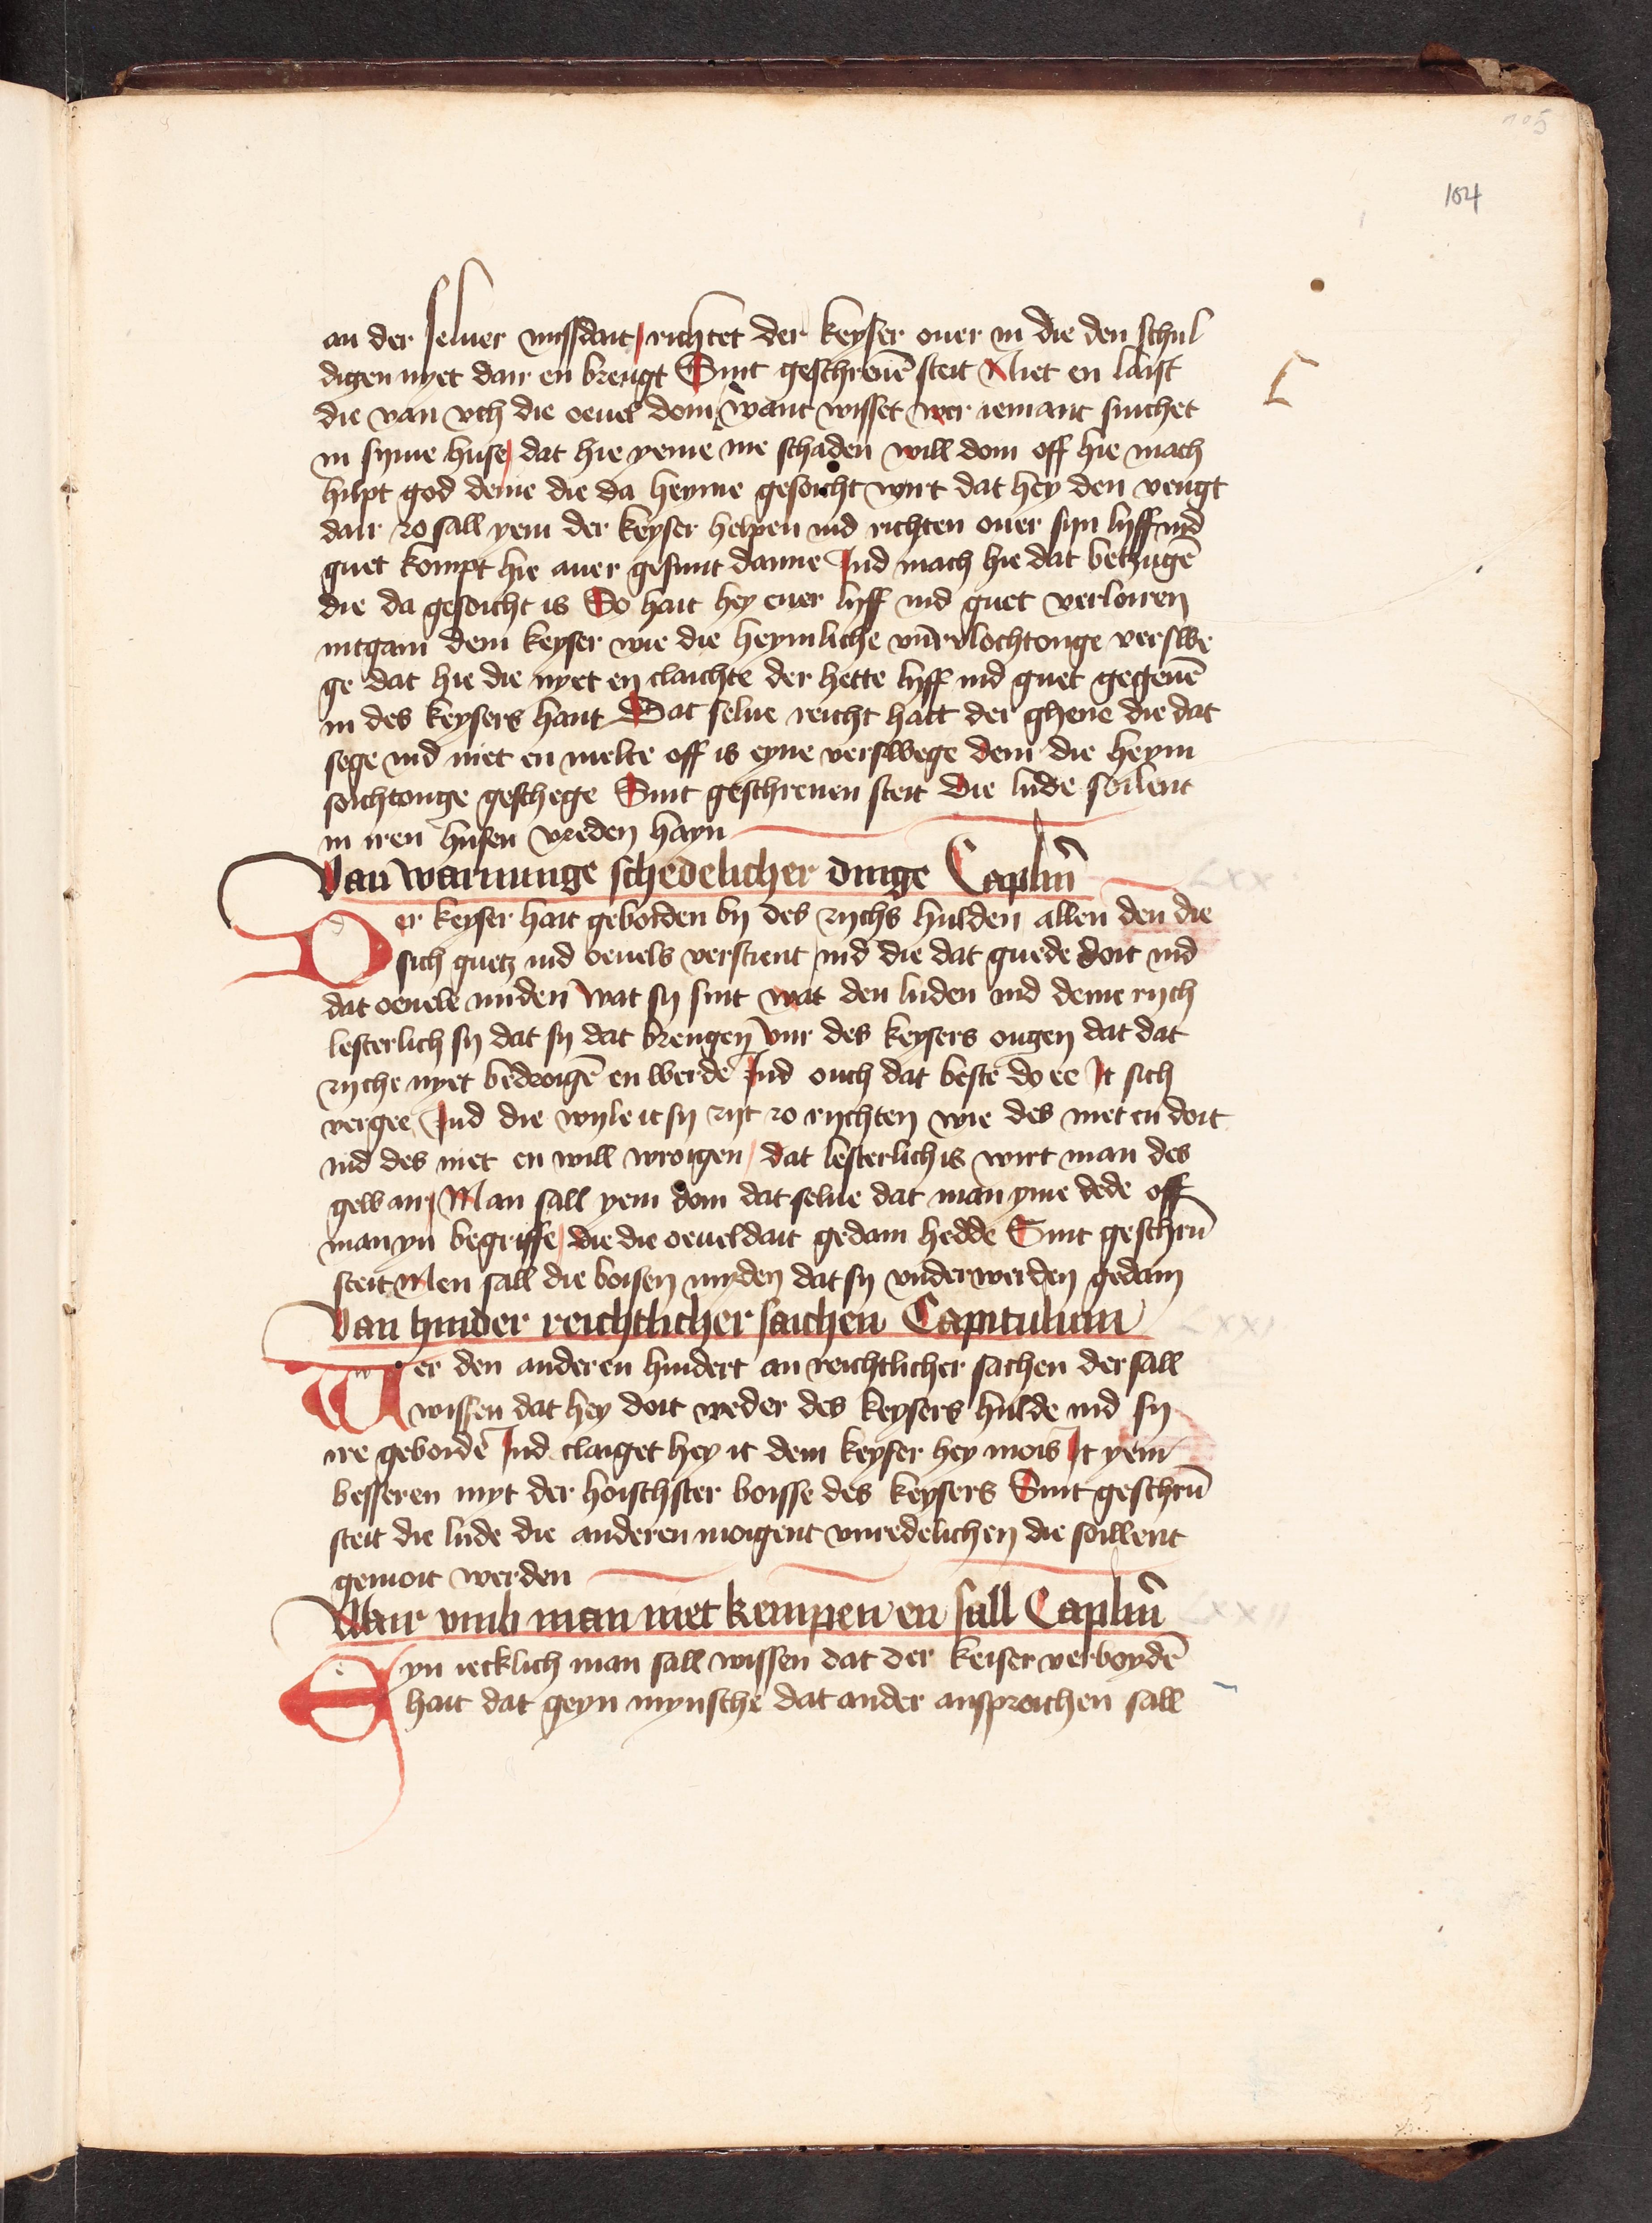 105
104
an der seluer missdait richtet der keyser ouer in die den schul
digen nyet dair en brengt Sint geschreuē steit Niet en laist
die van vch die oeuel doin want wisset wer iemant suichet
in syme huse dat hie yeme me schaden will doin off hie mach
hilpt god deme die da heyme gesoicht wirt dat hey den vengt
dair zo sall yem der keyser helpen ind richten ouer syn lyff ind
guet kompt hie auer gesunt danne Ind mach hie dat betzugē
die da gesoicht is So hait hey euer lyff ind guet verloiren
intgain dem keyser wie die heymliche vūrvlochtonge verswe
ge dat hie die nyet en claichte der hette lyff ind guet gegeuē
in des keysers hant Dat selue reicht hatt der ghene die dat
sege ind niet en melte off is eyne verswege dem die heym
soichtonge geschege Sint geschreuen steit Die lude soilent
in iren husen vreden hayn
Van warnunge schedelicher dinge Caplm̄
LXX
Der keyser hait geboiden by des rychs hulden allen den die
sich guetz ind oeuels verstient ind die dat guede doit ind
dat oeuele midēn wat sy sint wat den luden ind deme rych
lesterlich sy dat sy dat brengen vur des keysers ougen dat dat
ryche nyet bedroigē en werde Ind ouch dat beste do ee It sich
vergee Ind die wyle it sy zyt zo rychten wie des niet en doit
ind des niet en will wroigen dat lesterlich is wirt man des
gewan Man sall yem doin dat selue dat man yme dede off
man yn begriffe die die oeueldait gedain hedde Sint geschrū
steit Men sall die boisen myden dat sy vnderwerden gedain
Van hinder reichtlicher saichen Capitulum
LXXI
Wer den anderen hindert an reichtlicher sachen der sall
wissen dat hey doit weder des keysers hulde ind sy
ne geboidē Ind claiget hey it dem keyser hey mois It yem
besseren myt der hoischster boisse des keysers Sint geschrū
steit die lude die anderen moigent vnredelichen die soillent
gemoit werden
Wair vmb man niet kempen en sall Caplm̄
LXXII
Eyn iecklich man sall wissen dat der keiser verboydē
hait dat geyn mynsche dat ander ansproichen sall